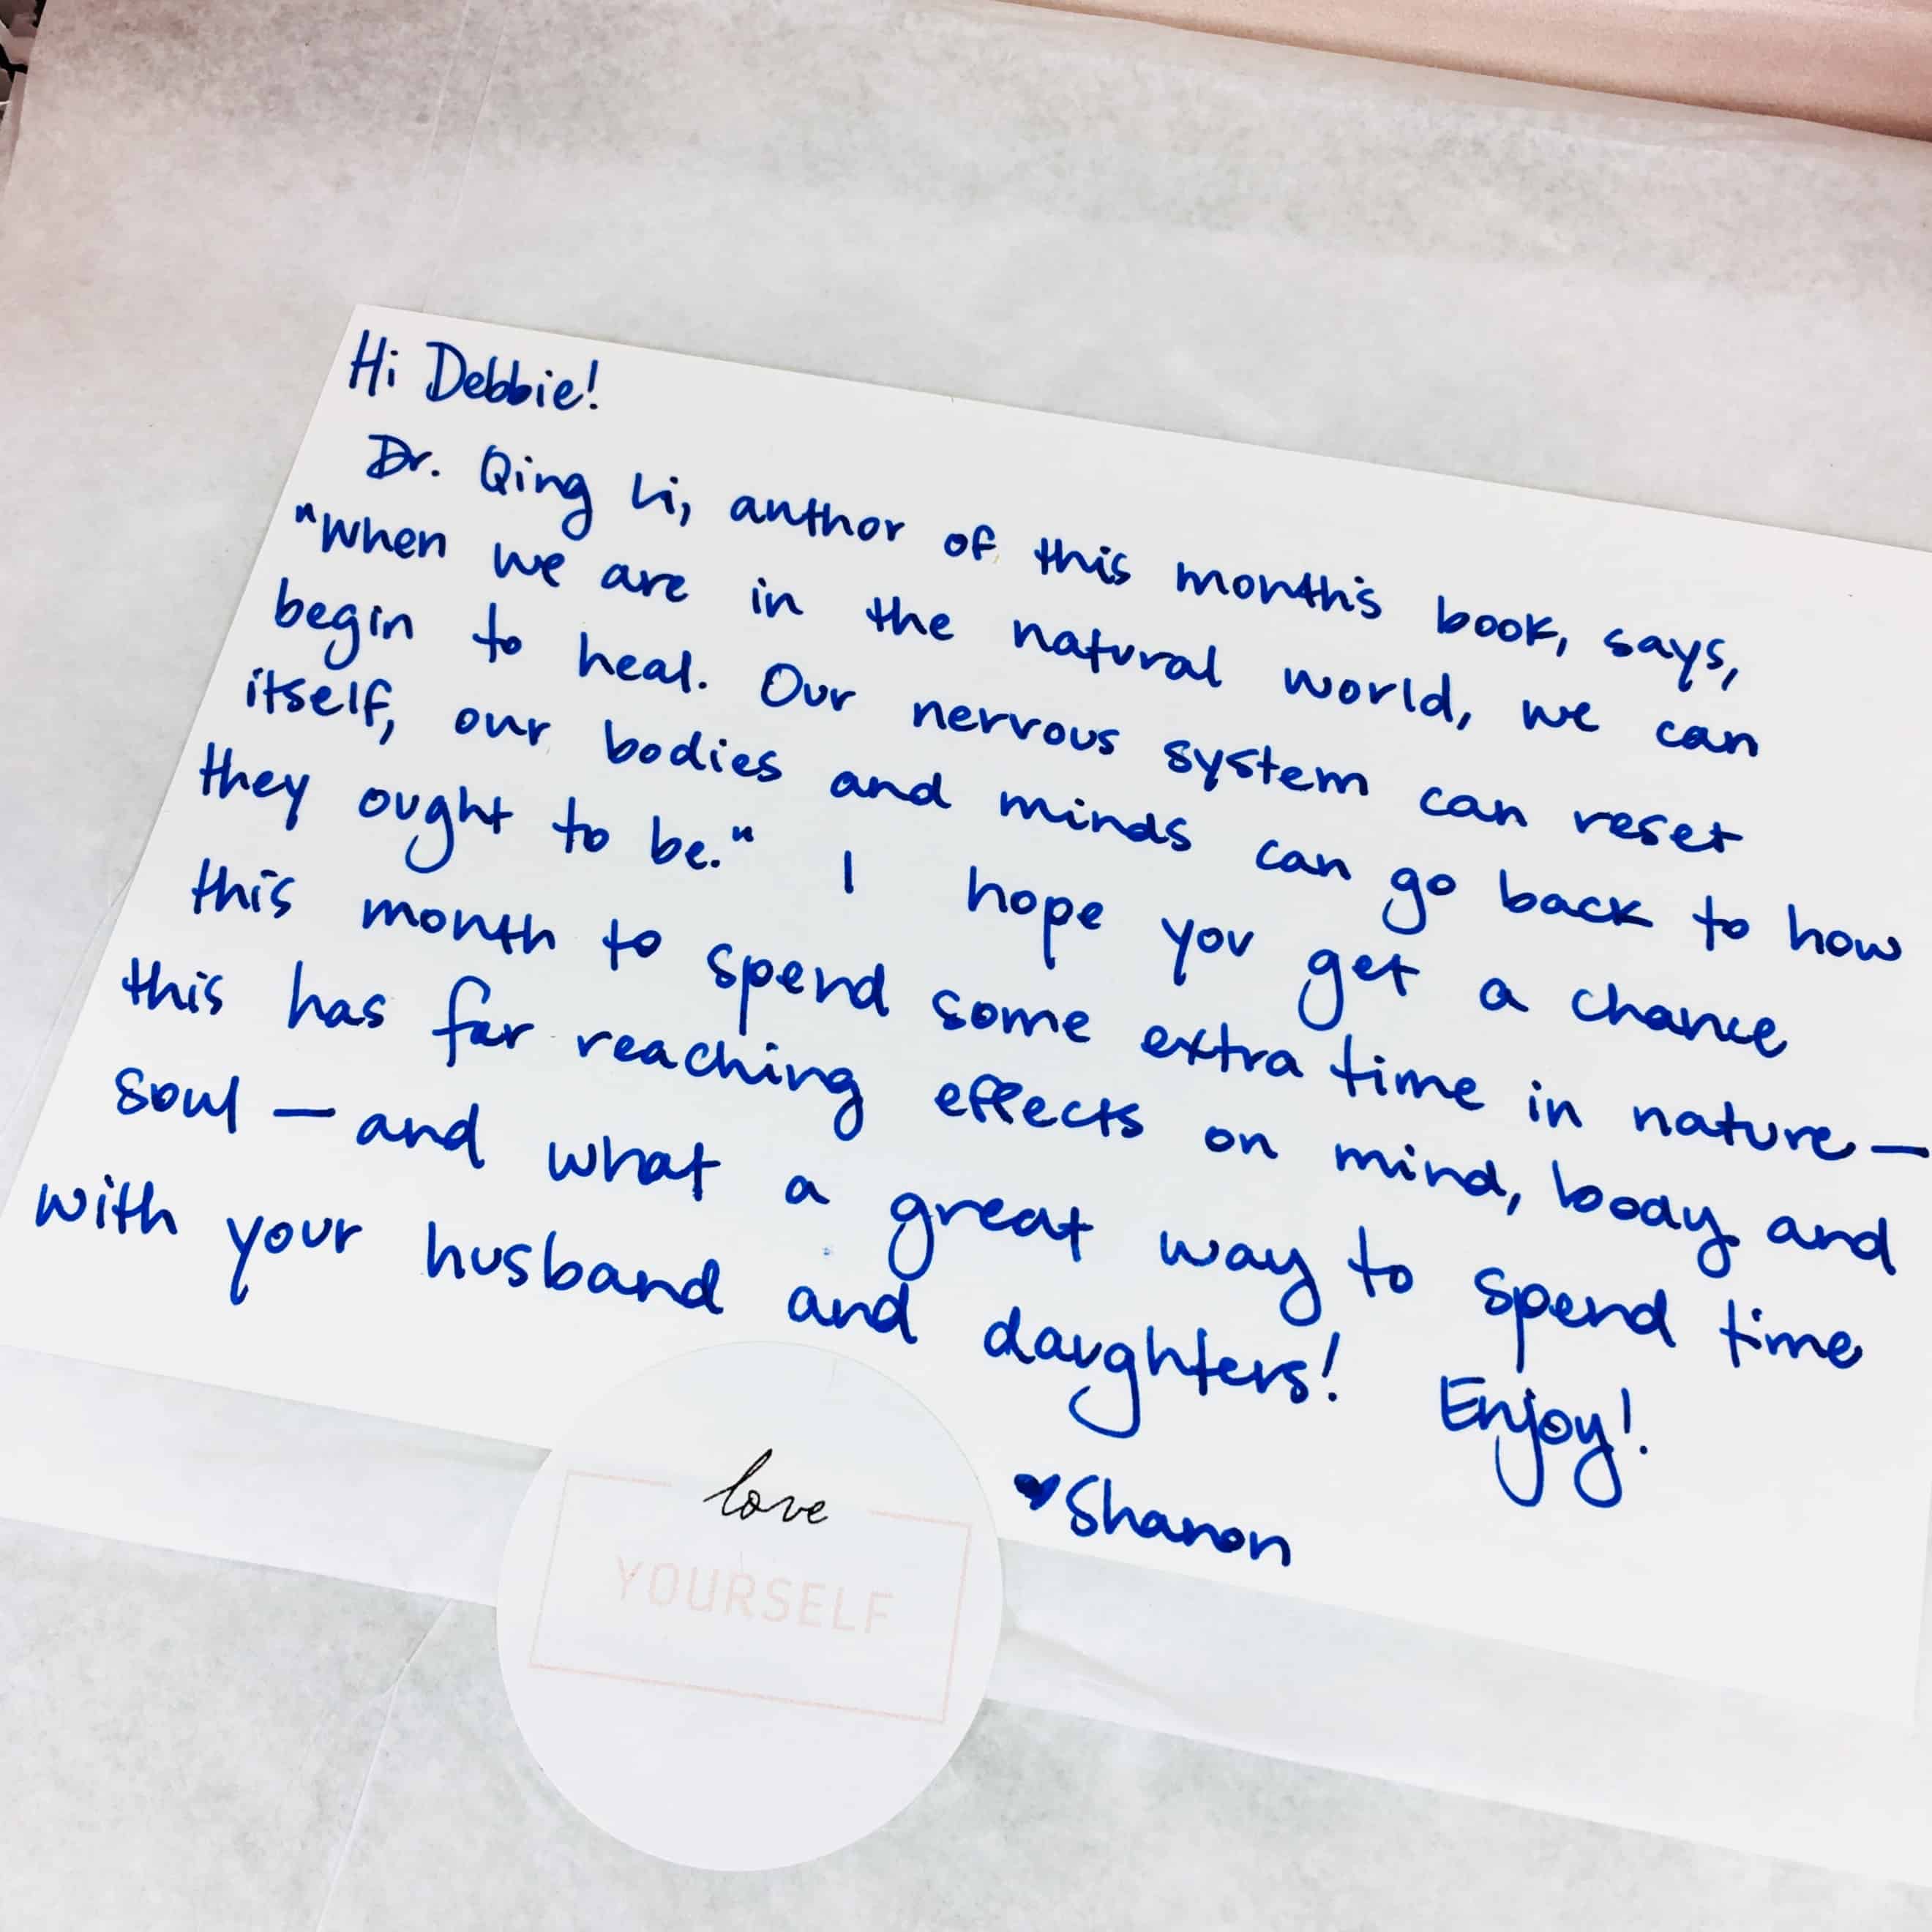 Hi Debbie!
Dr. Qing Li, author of this month's book, says,
"When we are in the natural world, we can
begin to heal. Our nervous system can reset
itself, our bodies and minds can go back to how
they ought to be." I hope you get a chance
this month to spend some extra time in nature—
this has far reaching effects on mind, body and
soul — and what a great way to spend time
with your husband and daughters! Enjoy!
♥Sharon
love
YOURSELF